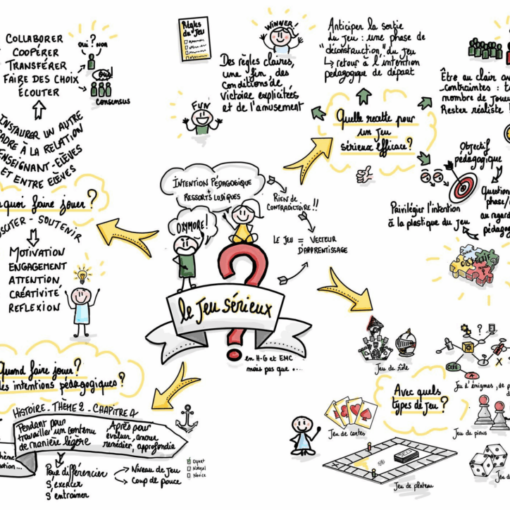 COLLABORER
COOPÉRER
TRANSFÉRER
FAIRE DES CHOIX
ÉCOUTER
OUI ? NON
CONSENSUS
INSTAURER UN AUTRE
CADRE À LA RELATION
ENSEIGNANT-ÉLÈVES
ET ENTRE ELÈVES
quoi faire jouer ?
SUSCITER - SOUTENIR
MOTIVATION
ENGAGEMENT
ATTENTION
CRÉATIVITÉ
REFLEXION
Règles
du jeu
WINNER!
FUN
Des règles claires,
une fin, des
conditions de
victoire explicitées
et de l'amusement
Anticiper la sortie
du jeu : une phase de
"déconstruction" du jeu
↳ retour à l'intention
pédagogique de départ
Être au clair av
contraintes : t
nombre de joueu
Rester réaliste !
Quelle recette pour
un jeu
sérieux efficace ?
Objectif
pédagogique
Question
phase
au regard
pédagog
Privilégier l'intention
à la plastique du jeu
INTENTION PÉDAGOGIQUE
+
RESSORTS LUDIQUES
OXYMORE!
RIEN DE
CONTRADICTOIRE !!
LE JEU = VECTEUR
D'APPRENTISSAGE
le jeu sérieux
en H-G et EMC
mais pas que ...
Quand faire jouer ?
des intentions pédagogiques ?
HISTOIRE . THÈME 2 . CHAPITRE 4
Pendant pour
travailler un contenu
de manière légère
Après pour
évaluer, ancrer,
remédier, approfondir
Pour différencier
s'exercer
s'entraîner
Niveau de jeu
Coup de pouce
Expert
Novice
Avec quels
types de jeu ?
Jeu de rôle
Jeu d'énigmes, de p
Jeu de cartes
Jeu de pions
Jeu de plateau
Jeu de dés